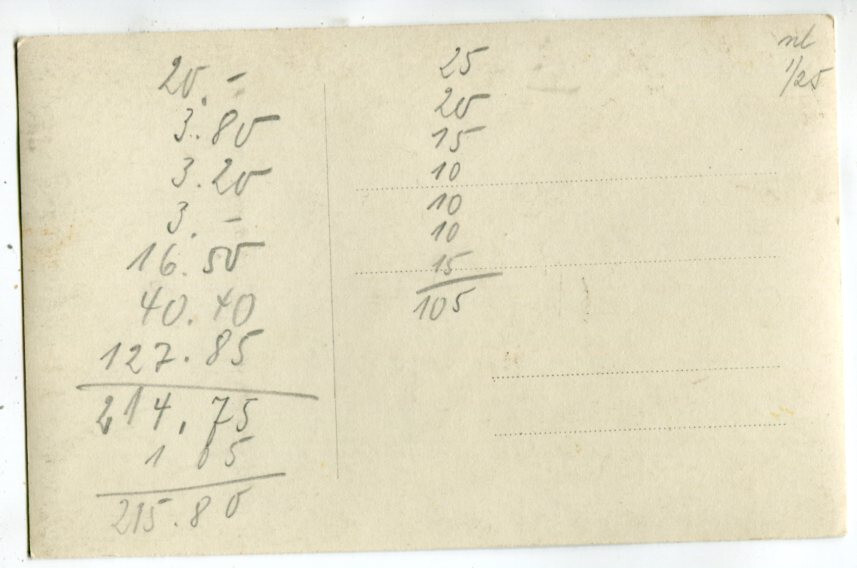 20.-
3.80
3.20
3.-
16.50
40.40
127.85
214.75
1 05
215.80
25
20
15
10
10
10
15
105
1/25